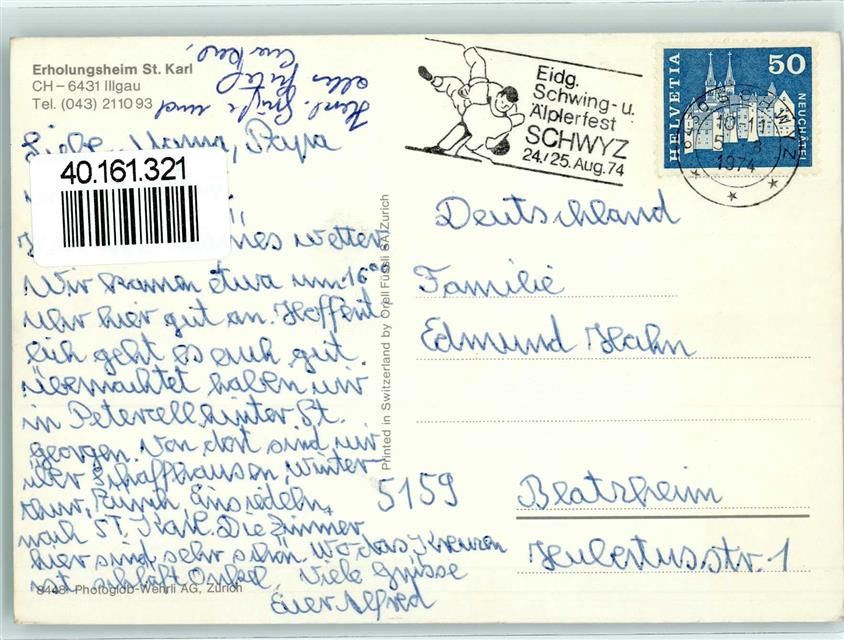 Erholungsheim St. Karl
CH – 6431 Illgau
Tel. (043) 21 10 93
Herzl. Grüße und
alles Gute
Liebe Mama, Papa
40.161.321
wetter
Wir kamen etwa um 16°°
Uhr hier gut an. Hoffent
lich geht es euch gut.
übernachtet haben wir
in Petercell hinter St.
georgen. Von dort sind wir
über Schaffhausen, Winter-
thur, Zürich Einsiedeln,
nach St. Karl. Die Zimmer
hier sind sehr schön. Wo das Kreuzen
ist schläft Onkel. Viele Grüsse
Euer Alfred
8448 Photoglob-Wehrli AG, Zürich
Printed in Switzerland by Orell Füssli SA/Zurich
Eidg.
Schwing- u.
Älplerfest
SCHWYZ
24./25. Aug. 74
HELVETIA
50
NEUCHÂTEL
SCHWYZ
1974
Deutschland
Familie
Edmund Hahn
5159 Blatzheim
Hubertusstr. 1